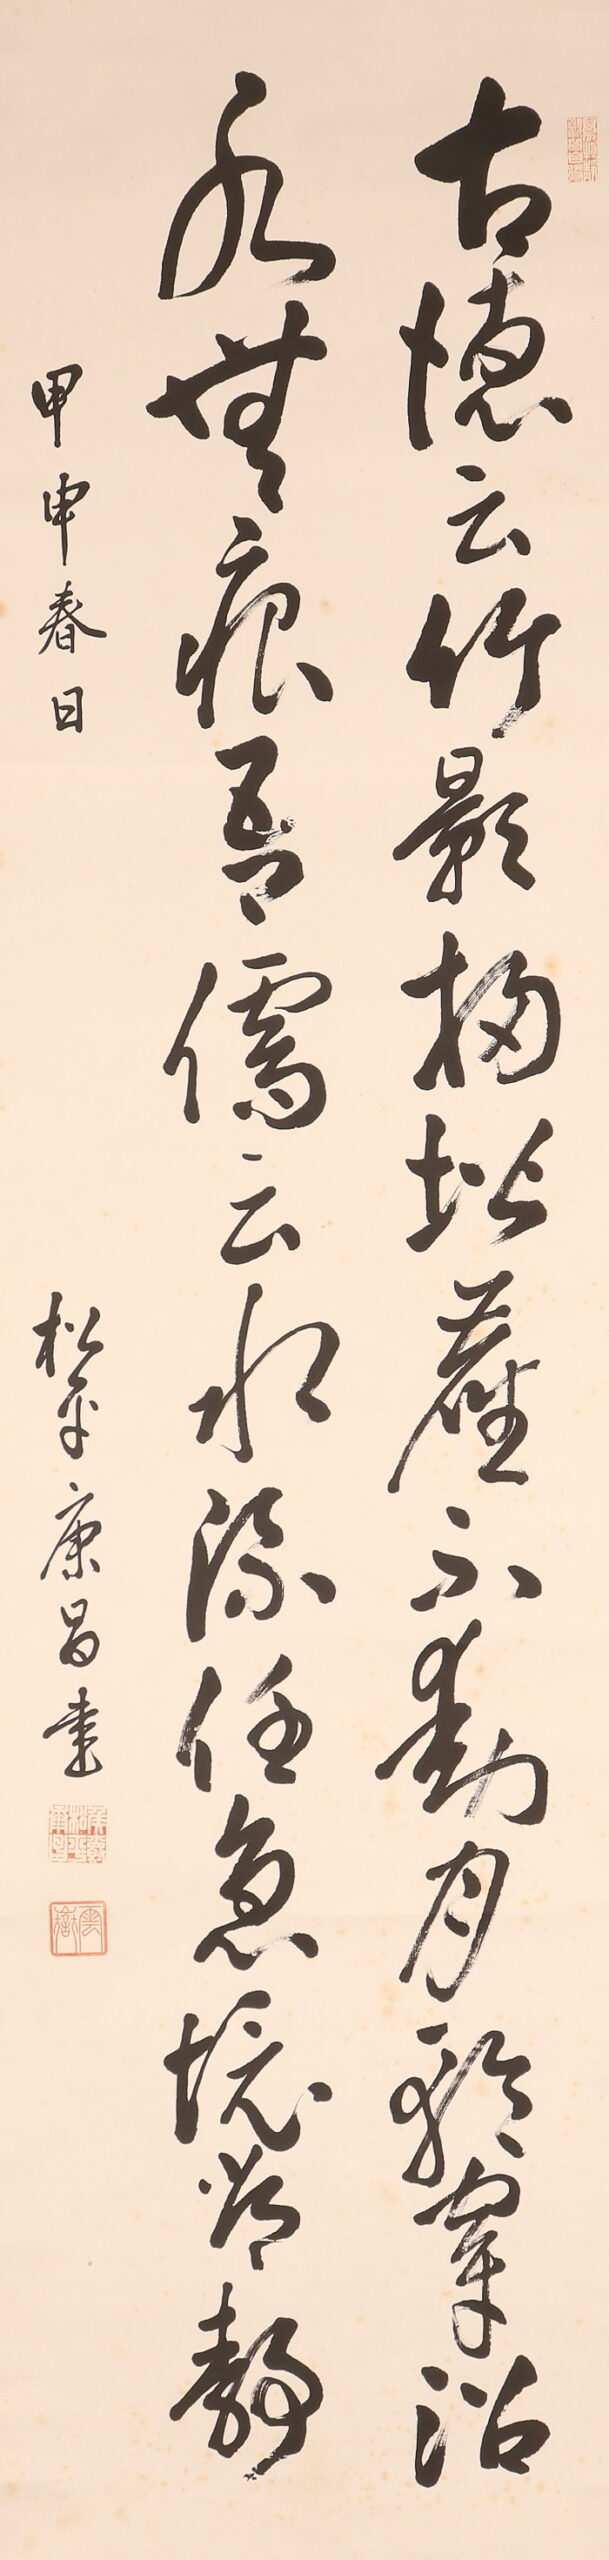 古徳云竹影掃堦塵不動月輪穿沼
水無痕吾儒云水流任急境常静
甲申春日
松平康昌書